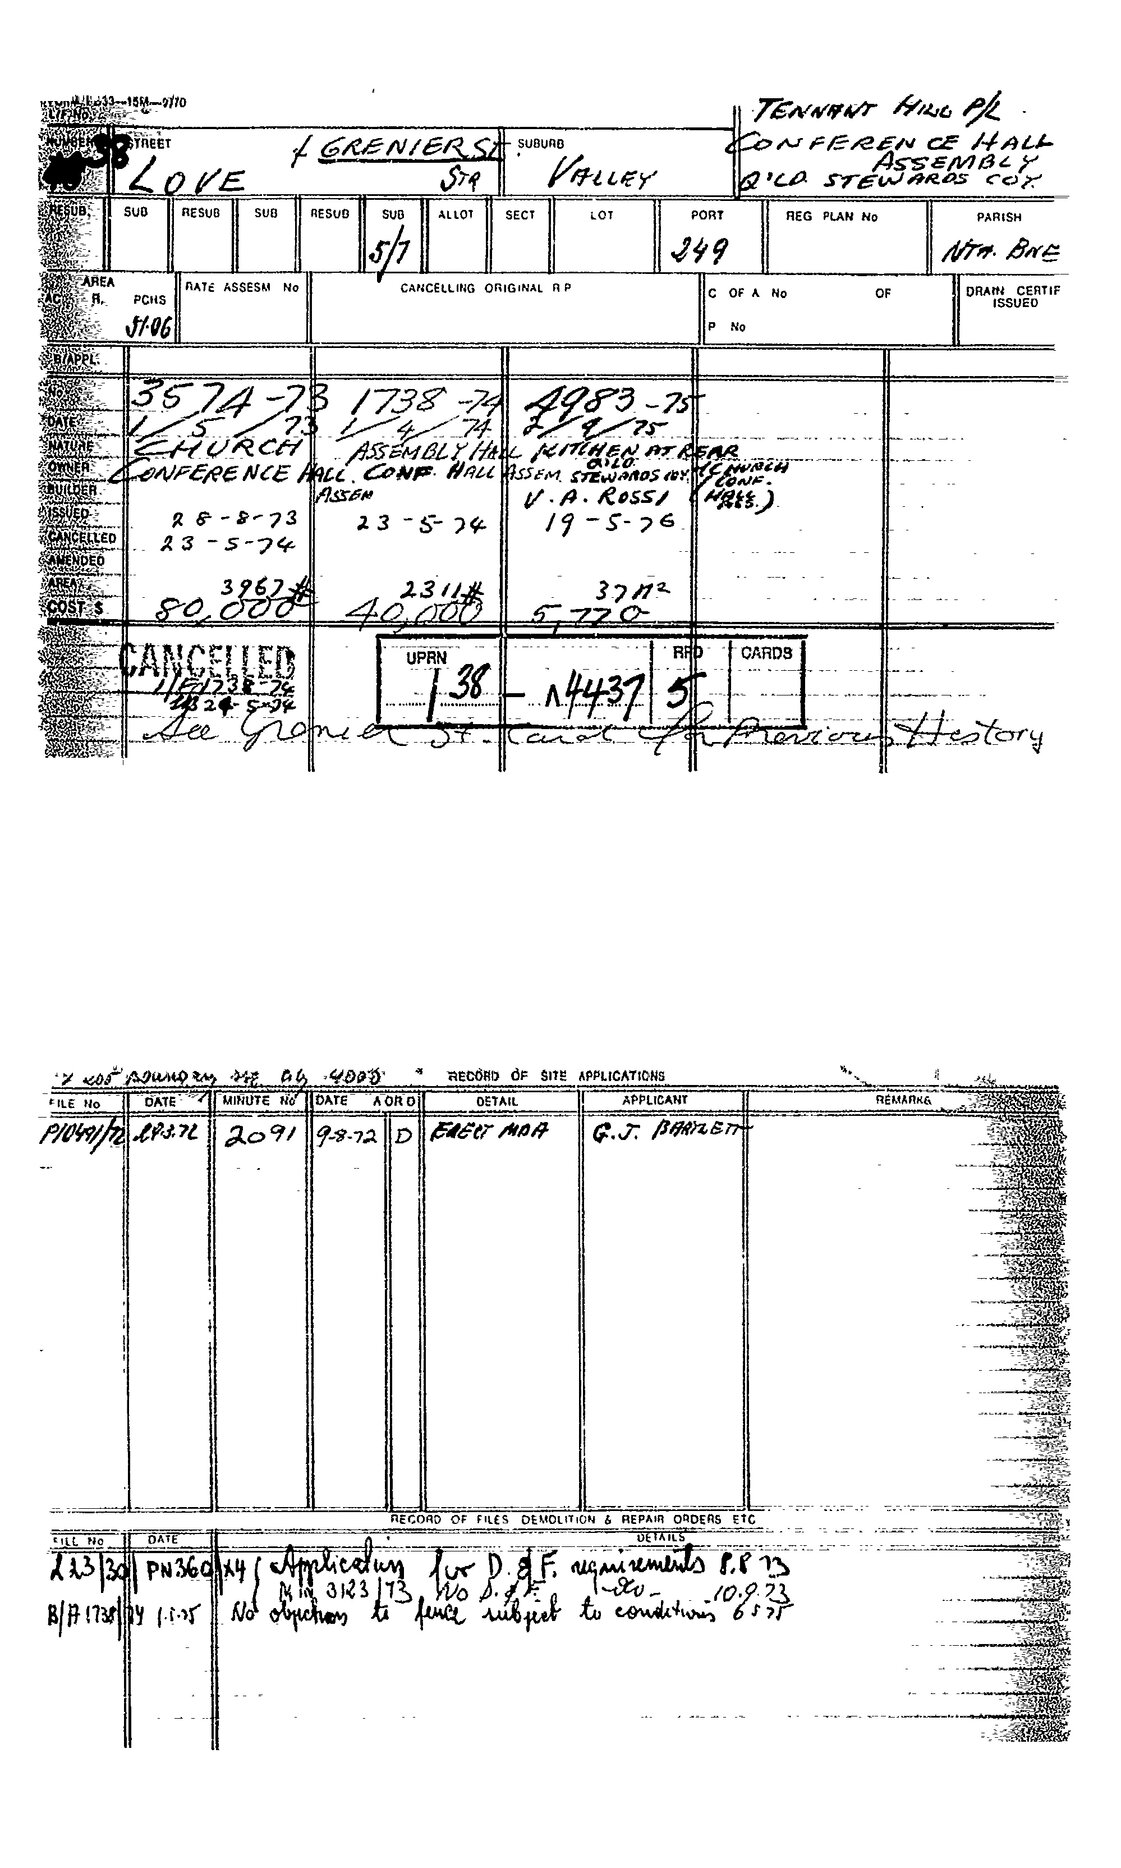 33—15M—9/70
TENNANT HILL P/L
NUMBER STREET SUBURB
38 LOVE STR
GRENIER ST. VALLEY
CONFERENCE HALL
ASSEMBLY
Q'LD. STEWARDS COY.
RESUB. SUB RESUB SUB RESUB SUB ALLOT SECT LOT PORT REG PLAN No PARISH
5/7 249 NTH. BNE
AREA RATE ASSESM No CANCELLING ORIGINAL R P C OF A No OF DRAIN CERTIF
AC. R. PCHS ISSUED
51·06 P No
B/APPL.
No. 3574-73 1738-74 4983-75
DATE 1/5/73 1/4/74 2/9/75
NATURE CHURCH ASSEMBLY HALL KITCHEN AT REAR
OWNER CONFERENCE HALL CONF. HALL ASSEM. QLD. STEWARDS COY. (CHURCH
ASSEM /CONF.
BUILDER V. A. ROSSI HALL
ISSUED 28-8-73 23-5-74 19-5-76
CANCELLED 23-5-74
AMENDED
AREA 3967# 2311# 37 M²
COST $ 80,000 40,000 5,770
CANCELLED
UPRN RPD CARDS
138 – 4437 5
See Grenier St. Card for Previous History
RECORD OF SITE APPLICATIONS
FILE No DATE MINUTE No DATE A OR D DETAIL APPLICANT REMARKS
2091 9-8-72 D ERECT G. J. BARTLETT
RECORD OF FILES DEMOLITION & REPAIR ORDERS ETC
FILE No DATE DETAILS
223/30/PN360/x4 Application for D. & F. requirements 8.8.73
Min 3123/73 No D. & F. -do- 10.9.73
B/A 1738/74 1.5.75 No objections to fence subject to conditions 6 5 75